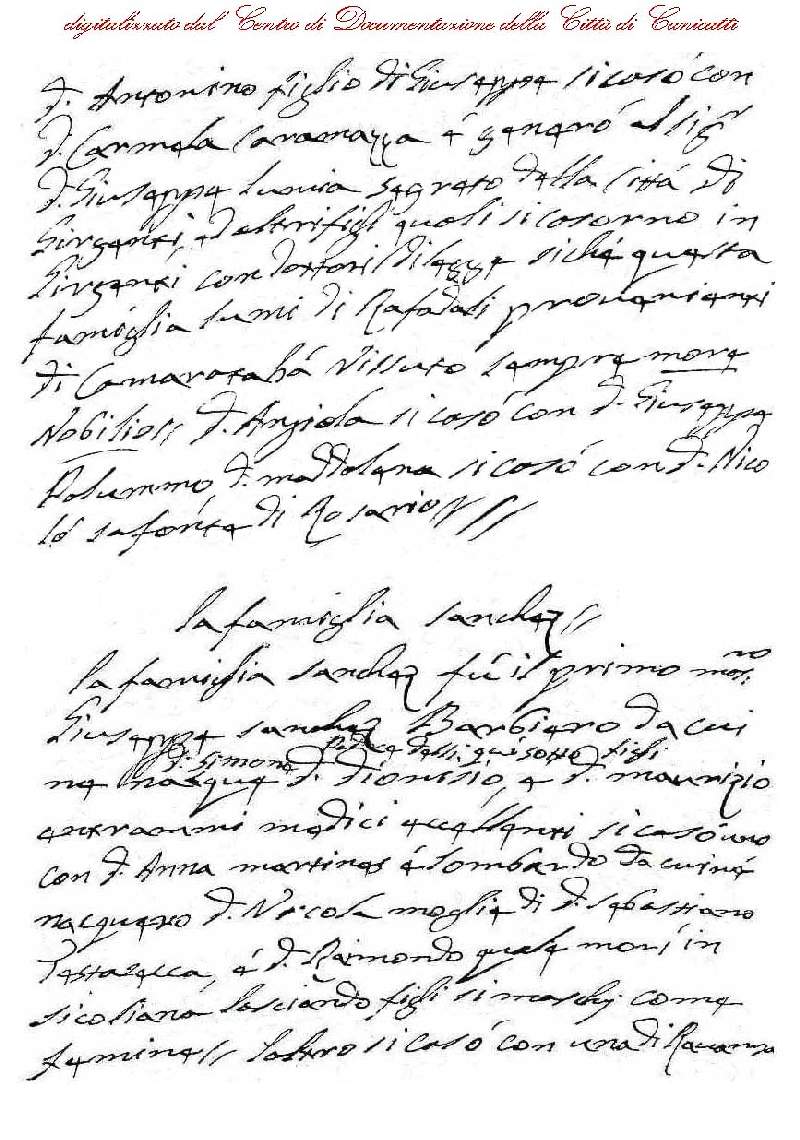 digitalizzato dal Centro di Documentazione della Città di Canicattì
d. Antonino figlio di Giuseppe si casó con
d. Carmela Caramazza é generó al sigr
d. Giuseppe Lumia segreto della Cittá di
Girgenti, ed altri figli quali si casorno in
Girgenti con dottori di legge siché questa
famiglia Lumi di Rafadali provenienti
di Camarata há vissuto sempre more
Nobilios// d. Angiola si casó con d. Giuseppe
Palummo, d. maddalena si casó con d. Nico
ló la fonte di Rosario////
la famiglia sanchez//
la famiglia sanchez fú il primo
Giuseppe sanchez Barbiero da cui
d. Simone padre delli qui sotto figli
ne nasque d. dionisio, e d. maurizio
entrammi medici eccellenti si casó uno
con d. Anna martines é Lombardo da cui né
nacquero d. Nicola moglie di d. sebastiano
Testasecca, é d. Raimondo quale morí in
sicoliana lasciando figli si maschj come
femine// Laltro si casó con una di Ravanusa